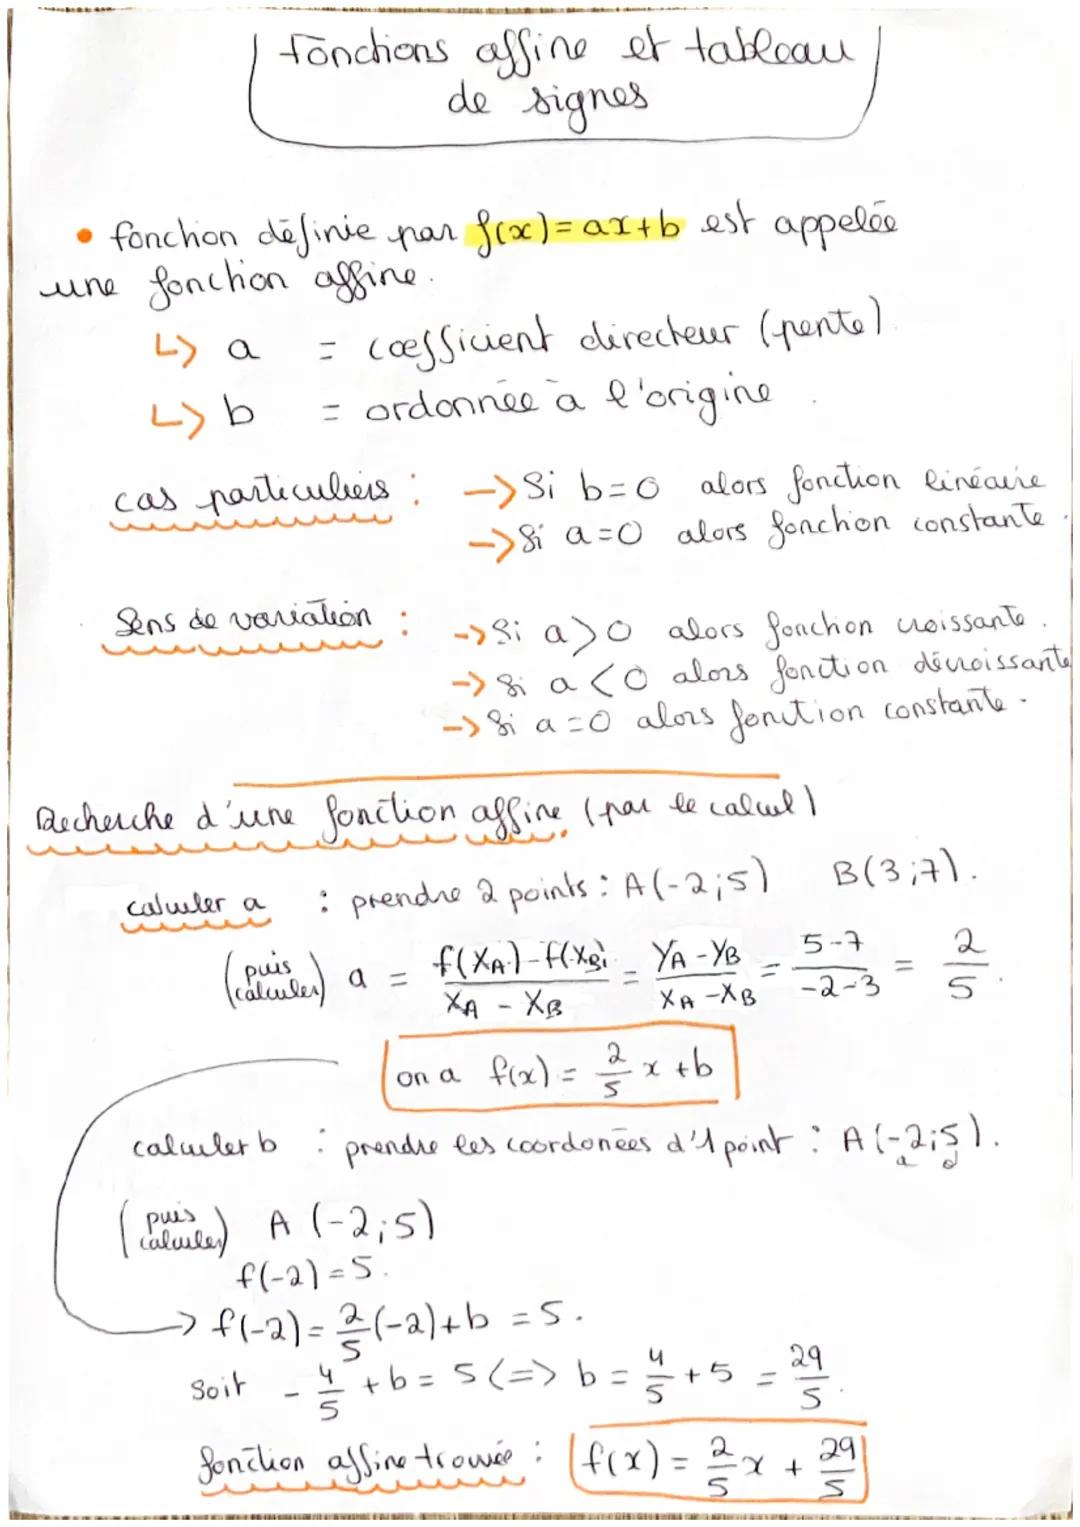 Fonctions affine et tableau
de signes
• fonction définie par f(x) = ax+b est appelée
une fonction affine.
↳ a = coefficient directeur (pente).
↳ b = ordonnée à l'origine.
cas particuliers : -> Si b=0 alors fonction linéaire
-> Si a=0 alors fonction constante.
Sens de variation : -> Si a>0 alors fonction croissante.
-> Si a<0 alors fonction décroissante
-> Si a=0 alors fonction constante.
Recherche d'une fonction affine. (par le calcul)
calculer a : prendre 2 points : A(-2;5) B(3;7).
(puis calculer) a = (f(XA)-f(XB))/(XA - XB) = (YA-YB)/(XA-XB) = (5-7)/(-2-3) = 2/5.
on a f(x) = 2/5 x + b
calculer b : prendre les coordonées d'1 point : A(-2;5).
(puis calculer) A (-2;5)
f(-2)=5.
-> f(-2) = 2/5 (-2)+b = 5.
Soit - 4/5 + b = 5 <=> b = 4/5 + 5 = 29/5.
fonction affine trouvée : f(x) = 2/5 x + 29/5